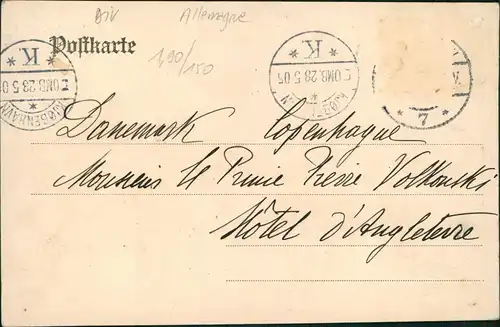 Div Allemagne
Postkarte
1,90/150
K
5.OMB. 23 5 05
KJØBENHAVN
K
5.OMB. 23 5 05
7
Danemark Copenhague
Monsieur le Prince Pierre Volkonski
Hôtel d'Angleterre